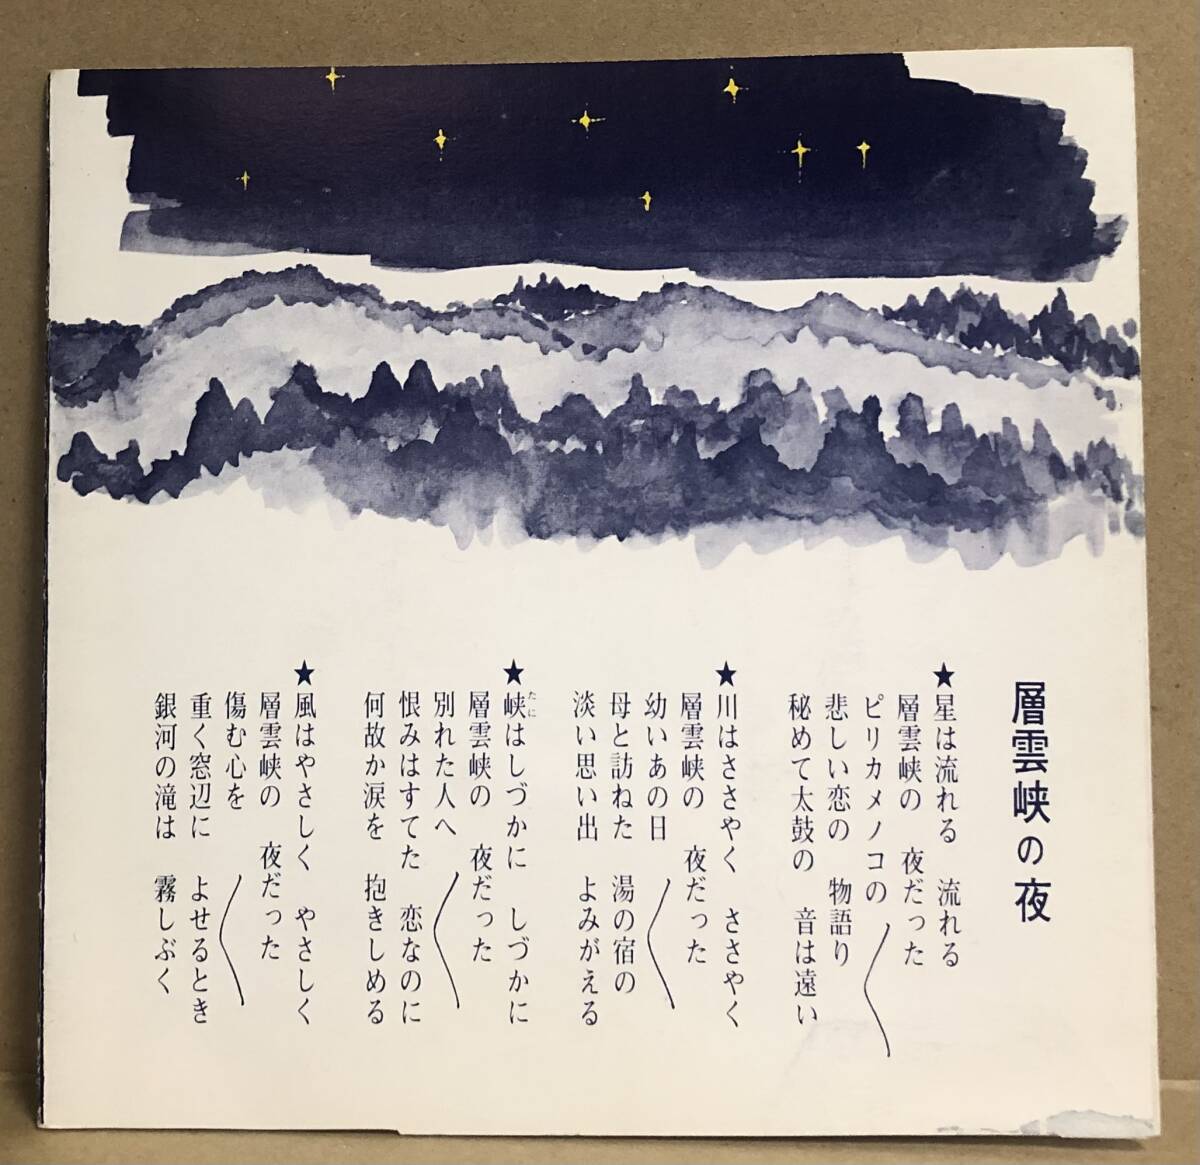 層雲峡の夜
★星は流れる 流れる
層雲峡の 夜だった
ピリカメノコの 〱
悲しい恋の 物語り
秘めて太鼓の 音は遠い
★川はささやく ささやく
層雲峡の 夜だった
幼いあの日 〱
母と訪ねた 湯の宿の
淡い思い出 よみがえる
★峡はしづかに しづかに
たに
層雲峡の 夜だった
別れた人へ 〱
恨みはすてた 恋なのに
何故か涙を 抱きしめる
★風はやさしく やさしく
層雲峡の 夜だった
傷む心を 〱
重く窓辺に よせるとき
銀河の滝は 霧しぶく